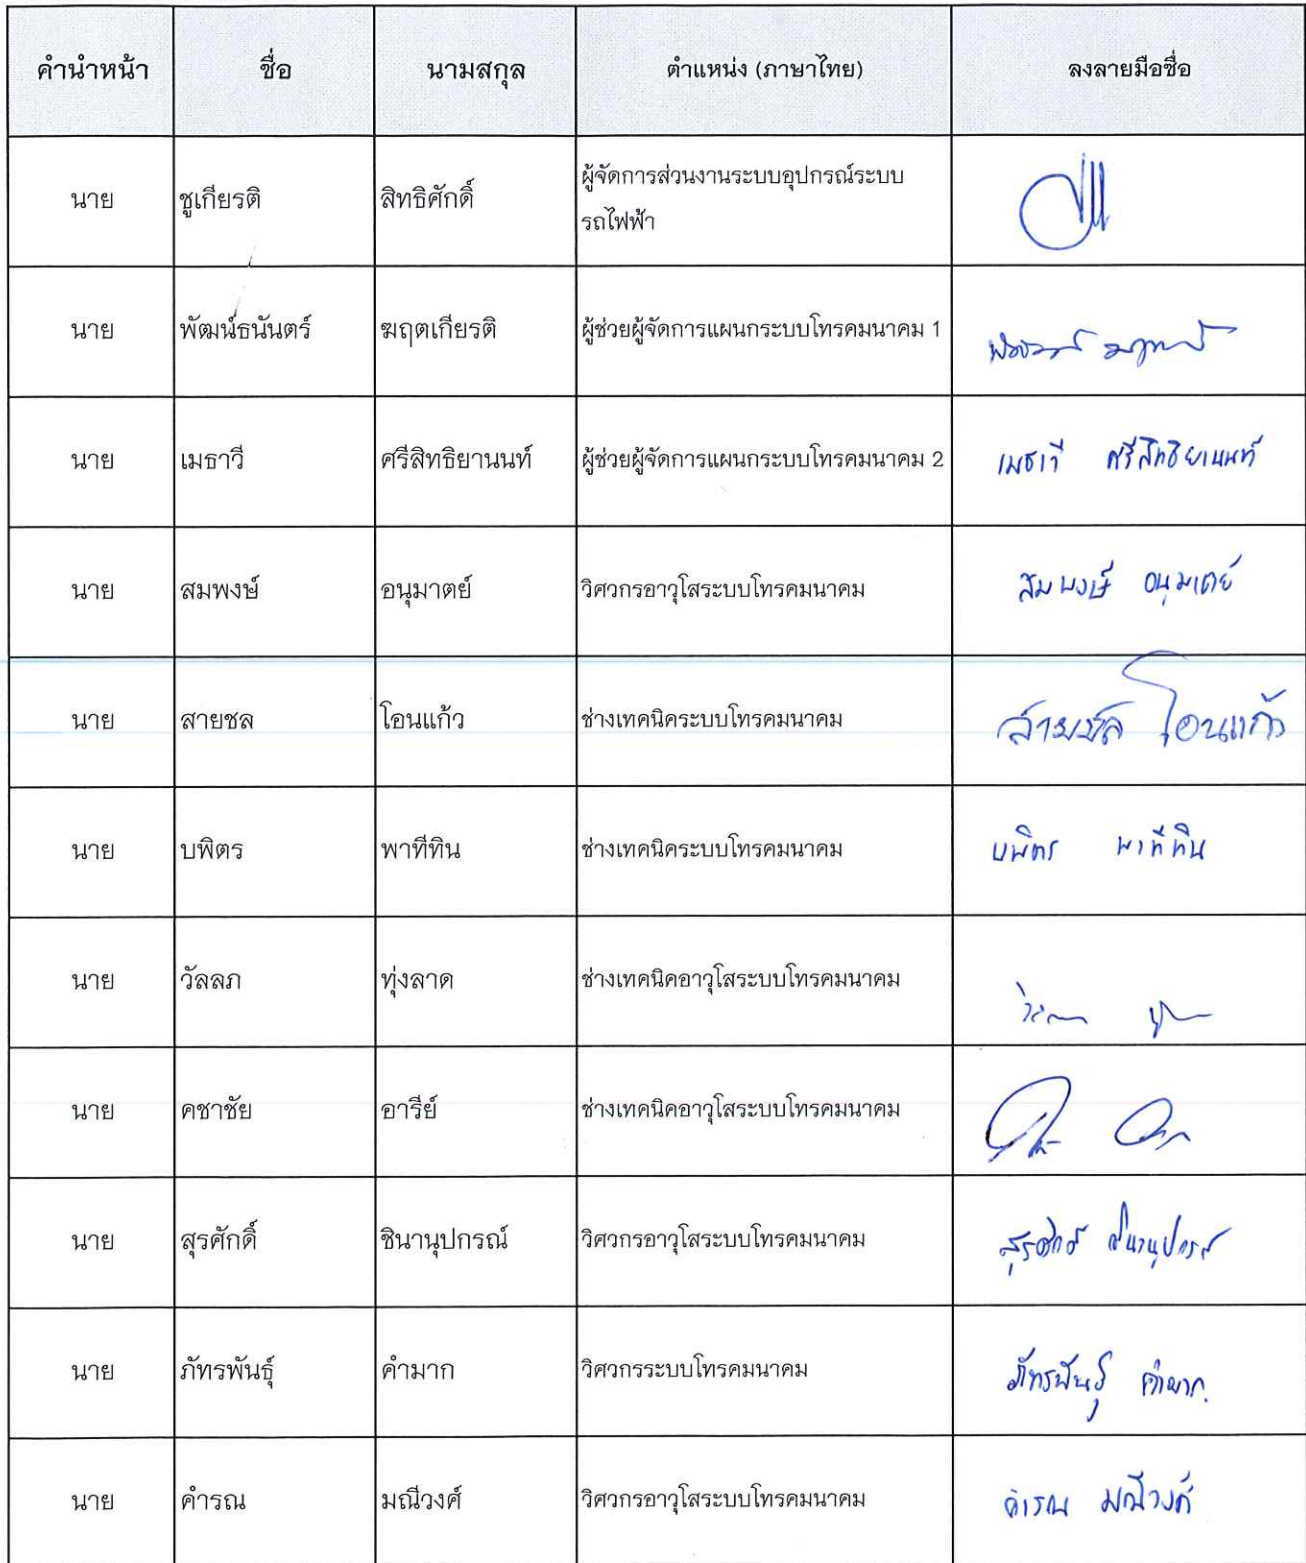 คำนำหน้า ชื่อ นามสกุล ตำแหน่ง (ภาษาไทย) ลงลายมือชื่อ
นาย ชูเกียรติ สิทธิศักดิ์ ผู้จัดการส่วนงานระบบอุปกรณ์ระบบ
รถไฟฟ้า
นาย พัฒน์ธนันตร์ ฆฤตเกียรติ ผู้ช่วยผู้จัดการแผนกระบบโทรคมนาคม 1
นาย เมธาวี ศรีสิทธิยานนท์ ผู้ช่วยผู้จัดการแผนกระบบโทรคมนาคม 2 เมธาวี ศรีสิทธิยานนท์
นาย สมพงษ์ อนุมาตย์ วิศวกรอาวุโสระบบโทรคมนาคม สมพงษ์ อนุมาตย์
นาย สายชล โอนแก้ว ช่างเทคนิคระบบโทรคมนาคม สายชล โอนแก้ว
นาย บพิตร พาทีทิน ช่างเทคนิคระบบโทรคมนาคม บพิตร พาทีทิน
นาย วัลลภ ทุ่งลาด ช่างเทคนิคอาวุโสระบบโทรคมนาคม
นาย คชาชัย อารีย์ ช่างเทคนิคอาวุโสระบบโทรคมนาคม
นาย สุรศักดิ์ ชินานุปกรณ์ วิศวกรอาวุโสระบบโทรคมนาคม สุรศักดิ์ ชินานุปกรณ์
นาย ภัทรพันธุ์ คำมาก วิศวกรระบบโทรคมนาคม ภัทรพันธุ์ คำมาก
นาย คำรณ มณีวงศ์ วิศวกรอาวุโสระบบโทรคมนาคม คำรณ มณีวงศ์